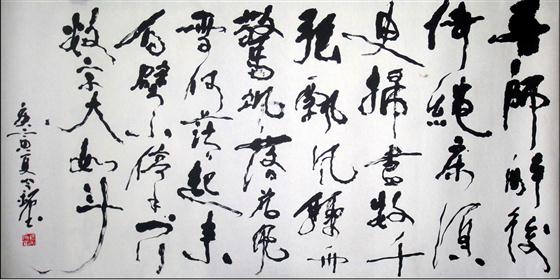 吾師醉後
倚繩床須
臾掃盡數千
張飄風驟雨
驚颯々落花飛
雪何茫々起来
向壁不停手一行
數字大如斗
庚寅夏